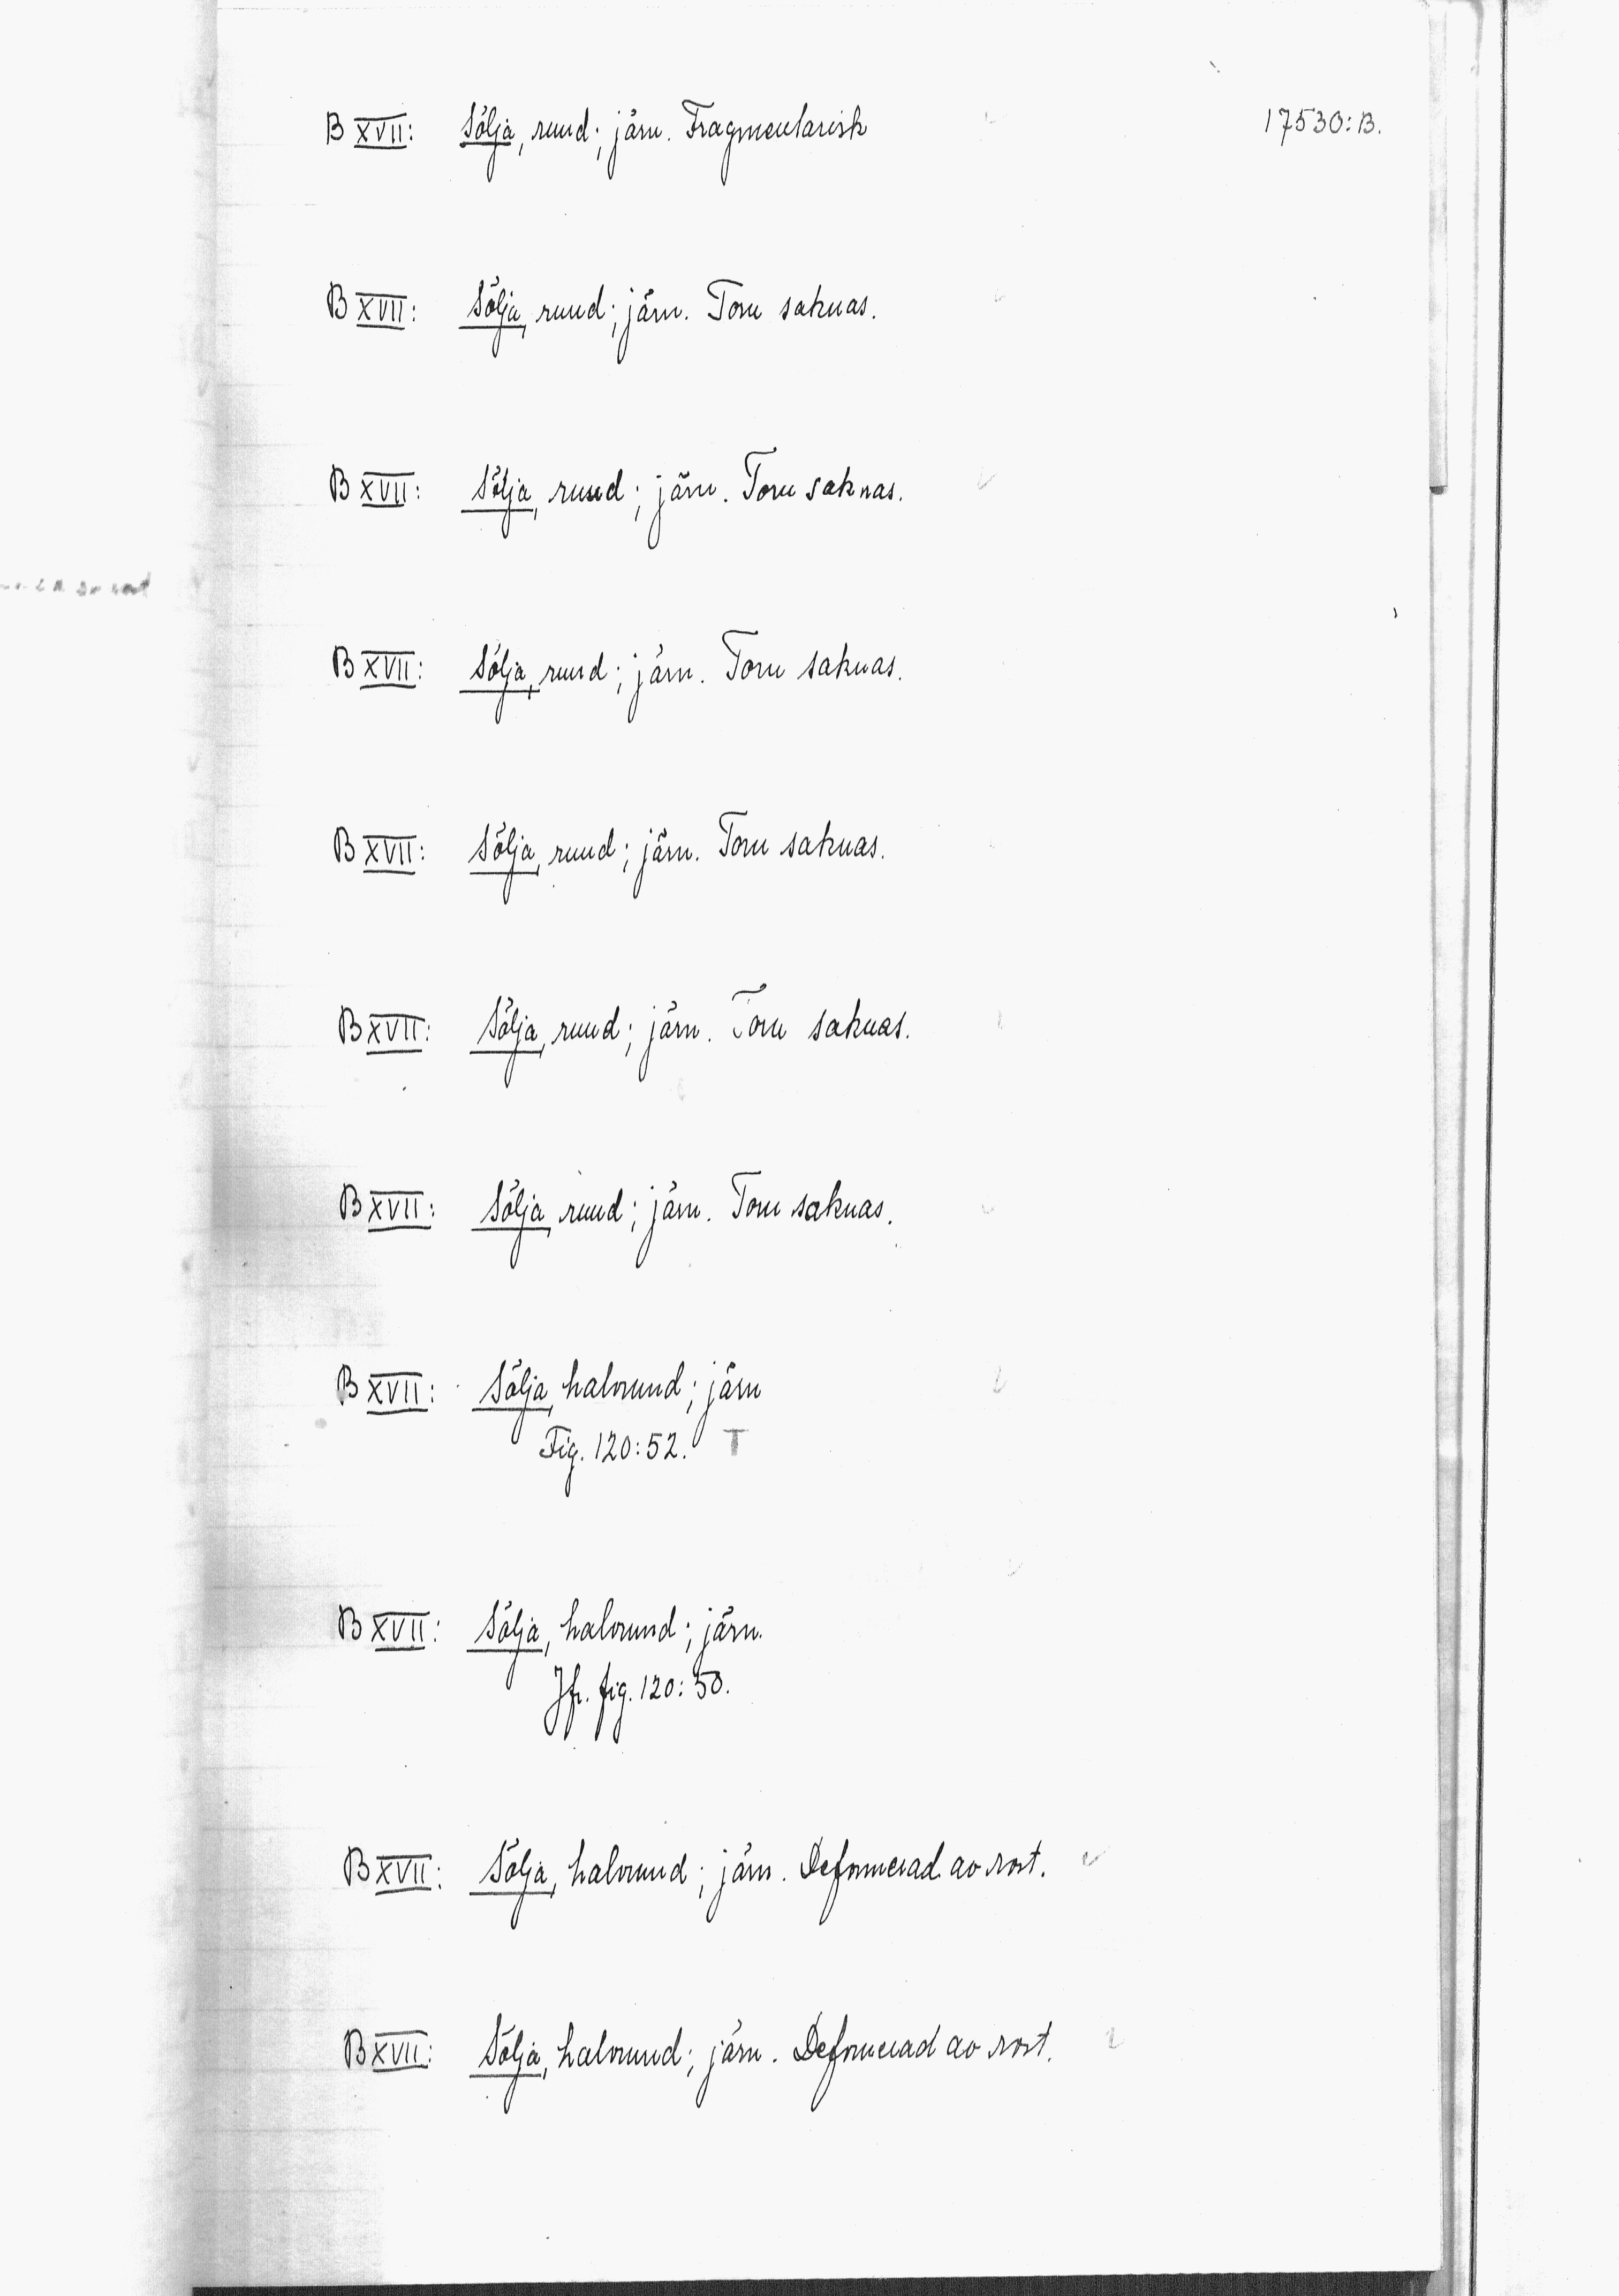 17530:B.
B XVII: Sölja, rund; järn. Fragmentarisk
B XVII: Sölja, rund; järn. Torn saknas.
B XVII: Sölja, rund; järn. Torn saknas.
B XVII: Sölja, rund; järn. Torn saknas.
B XVII: Sölja, rund; järn. Torn saknas.
B XVII: Sölja, rund; järn. Torn saknas.
B XVII: Sölja, rund; järn. Torn saknas.
B XVII: Sölja, halvrund; järn
Fig. 120:52. T
B XVII: Sölja, halvrund; järn.
Jfr. fig. 120:50.
B XVII: Sölja, halvrund; järn. Deformerad av rost.
B XVII: Sölja, halvrund; järn. Deformerad av rost.